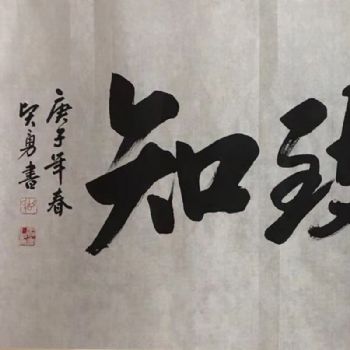 致知
庚子年春
吴勇書